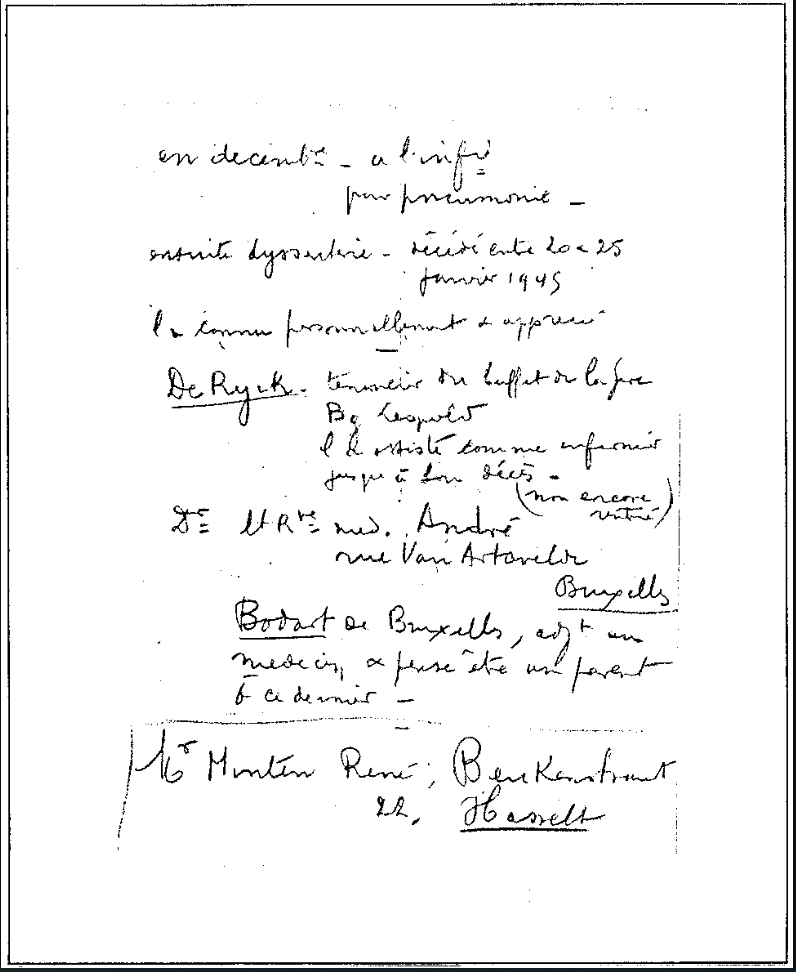 en decembre - a l'infie
pour pneumonie -
ensuite dyssenterie - décédé entre 20 a 25
janvier 1945
l'a connu personnellement & apprecié
De Ryck. tenancier du buffet de la gare
Bg Leopold
il l'a assisté comme infirmier
jusqu'à son décès -
(non encore
rentré)
Dr med. André
rue Van Artevelde
Bruxelles
Bodart de Bruxelles, adjt au
medecin, & pense être un parent
de ce dernier -
Mr Monten René, Beukenstraat
22, Hasselt